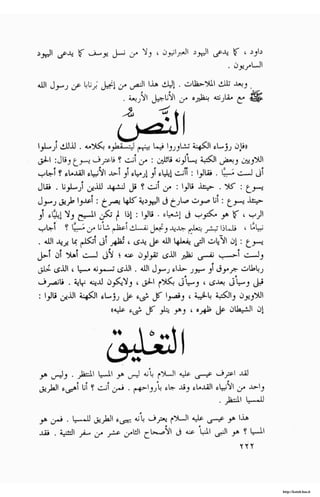 داود ، ولا من نسل يوسف كما يدعى اليهود العبرانيون ، كما يدعى اليهود
السامريون .
وبعد تلك الملاحظات . إليك هذا النص من إنجيل برنابا عن رسول الله
ﷺ مع مقارنة نصه بنظيره من الأناجيل الأربعة .
النص
«فإن رؤساء الكهنة تشاوروا فيما بينهم ليتسقطوه بكلامه . لذلك أرسلوا
اللاويين وبعض الكتبة يسألونه قائلين : من أنت ؟ فاعترف يسوع وقال : الحق
أنى لست مسيا . فقالوا : أأنت إيلياء أو إرمياء أو أحد الأنبياء القدماء ؟ أجاب
يسوع : كلا . حينئذ قالوا : من أنت ؟ قل لنشهد للذين أرسلونا . فقال
حينئذ يسوع : أنا صوت صارخ فى اليهودية كلها يصرخ : أعدوا طريق رسول
الرب ، كما هو مكتوب فى إشعياء . قالوا : إذا لم تكن المسيح ولا إيلياء أو
نبيا ما ، فلماذا تبشر بتعليم جديد وتجعل نفسك أعظم شأنا من مسيا ؟ أجاب
يسوع : إن الآيات التى يفعلها الله على يدى ، تُظهر أنى أتكلم بما يريد الله .
ولست أحسب نفسى نظير الذى تقولون عنه ؛ لأنى لست أهلا أن أحل
رباطات جرموق أو سيور حذاء رسول الله . الذى تسمونه مسيا ، الذى خُلق
قبلى وسيأتى بعدى ، وسيأتى بكلام الحق ، ولا يكون لدينه نهاية . فانصرف
اللاويون والكتبة بالخيبة ، وقصوا كل شىء على رؤساء الكهنة الذين قالوا :
إن الشيطان على ظهره ، وهو يتلو كل شىء عليه»
التعليق
لقد اعترف عيسى عليه السلام بأنه ليس هو المسيا المنتظر . وليس هو
واحد من الأنبياء القدماء وقد جاء بأرواحهم . فمن أنت ؟ أنا أهيىء الطريق
للمسيا المنتظر .
هذا هو عيسى عليه السلام يعترف بأنه يهيىء الطريق للمسيا . فمن هو
المسيا ؟ هو النبى المنبأ عنه فى الأصحاح الثامن عشر من سفر التثنية . فقد
٢٢٢
http://kotob.has.it